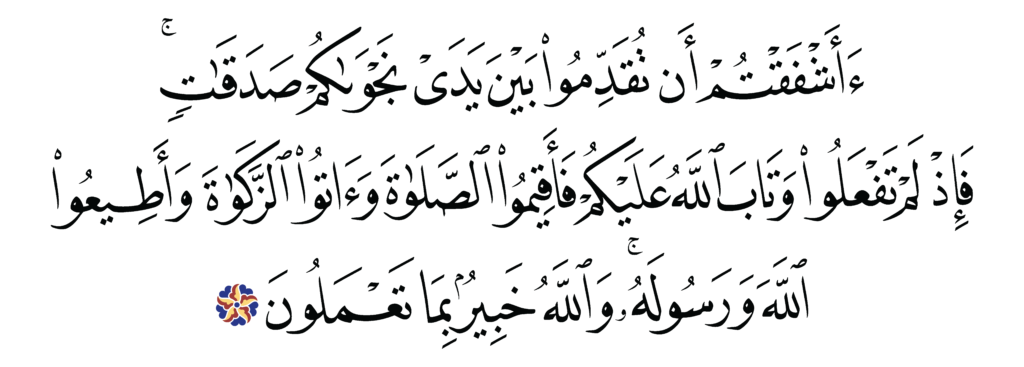 ءَأَشْفَقْتُمْ أَن تُقَدِّمُوا۟ بَيْنَ يَدَىْ نَجْوَىٰكُمْ صَدَقَـٰتٍ ۚ
فَإِذْ لَمْ تَفْعَلُوا۟ وَتَابَ ٱللَّهُ عَلَيْكُمْ فَأَقِيمُوا۟ ٱلصَّلَوٰةَ وَءَاتُوا۟ ٱلزَّكَوٰةَ وَأَطِيعُوا۟
ٱللَّهَ وَرَسُولَهُۥ ۚ وَٱللَّهُ خَبِيرٌۢ بِمَا تَعْمَلُونَ